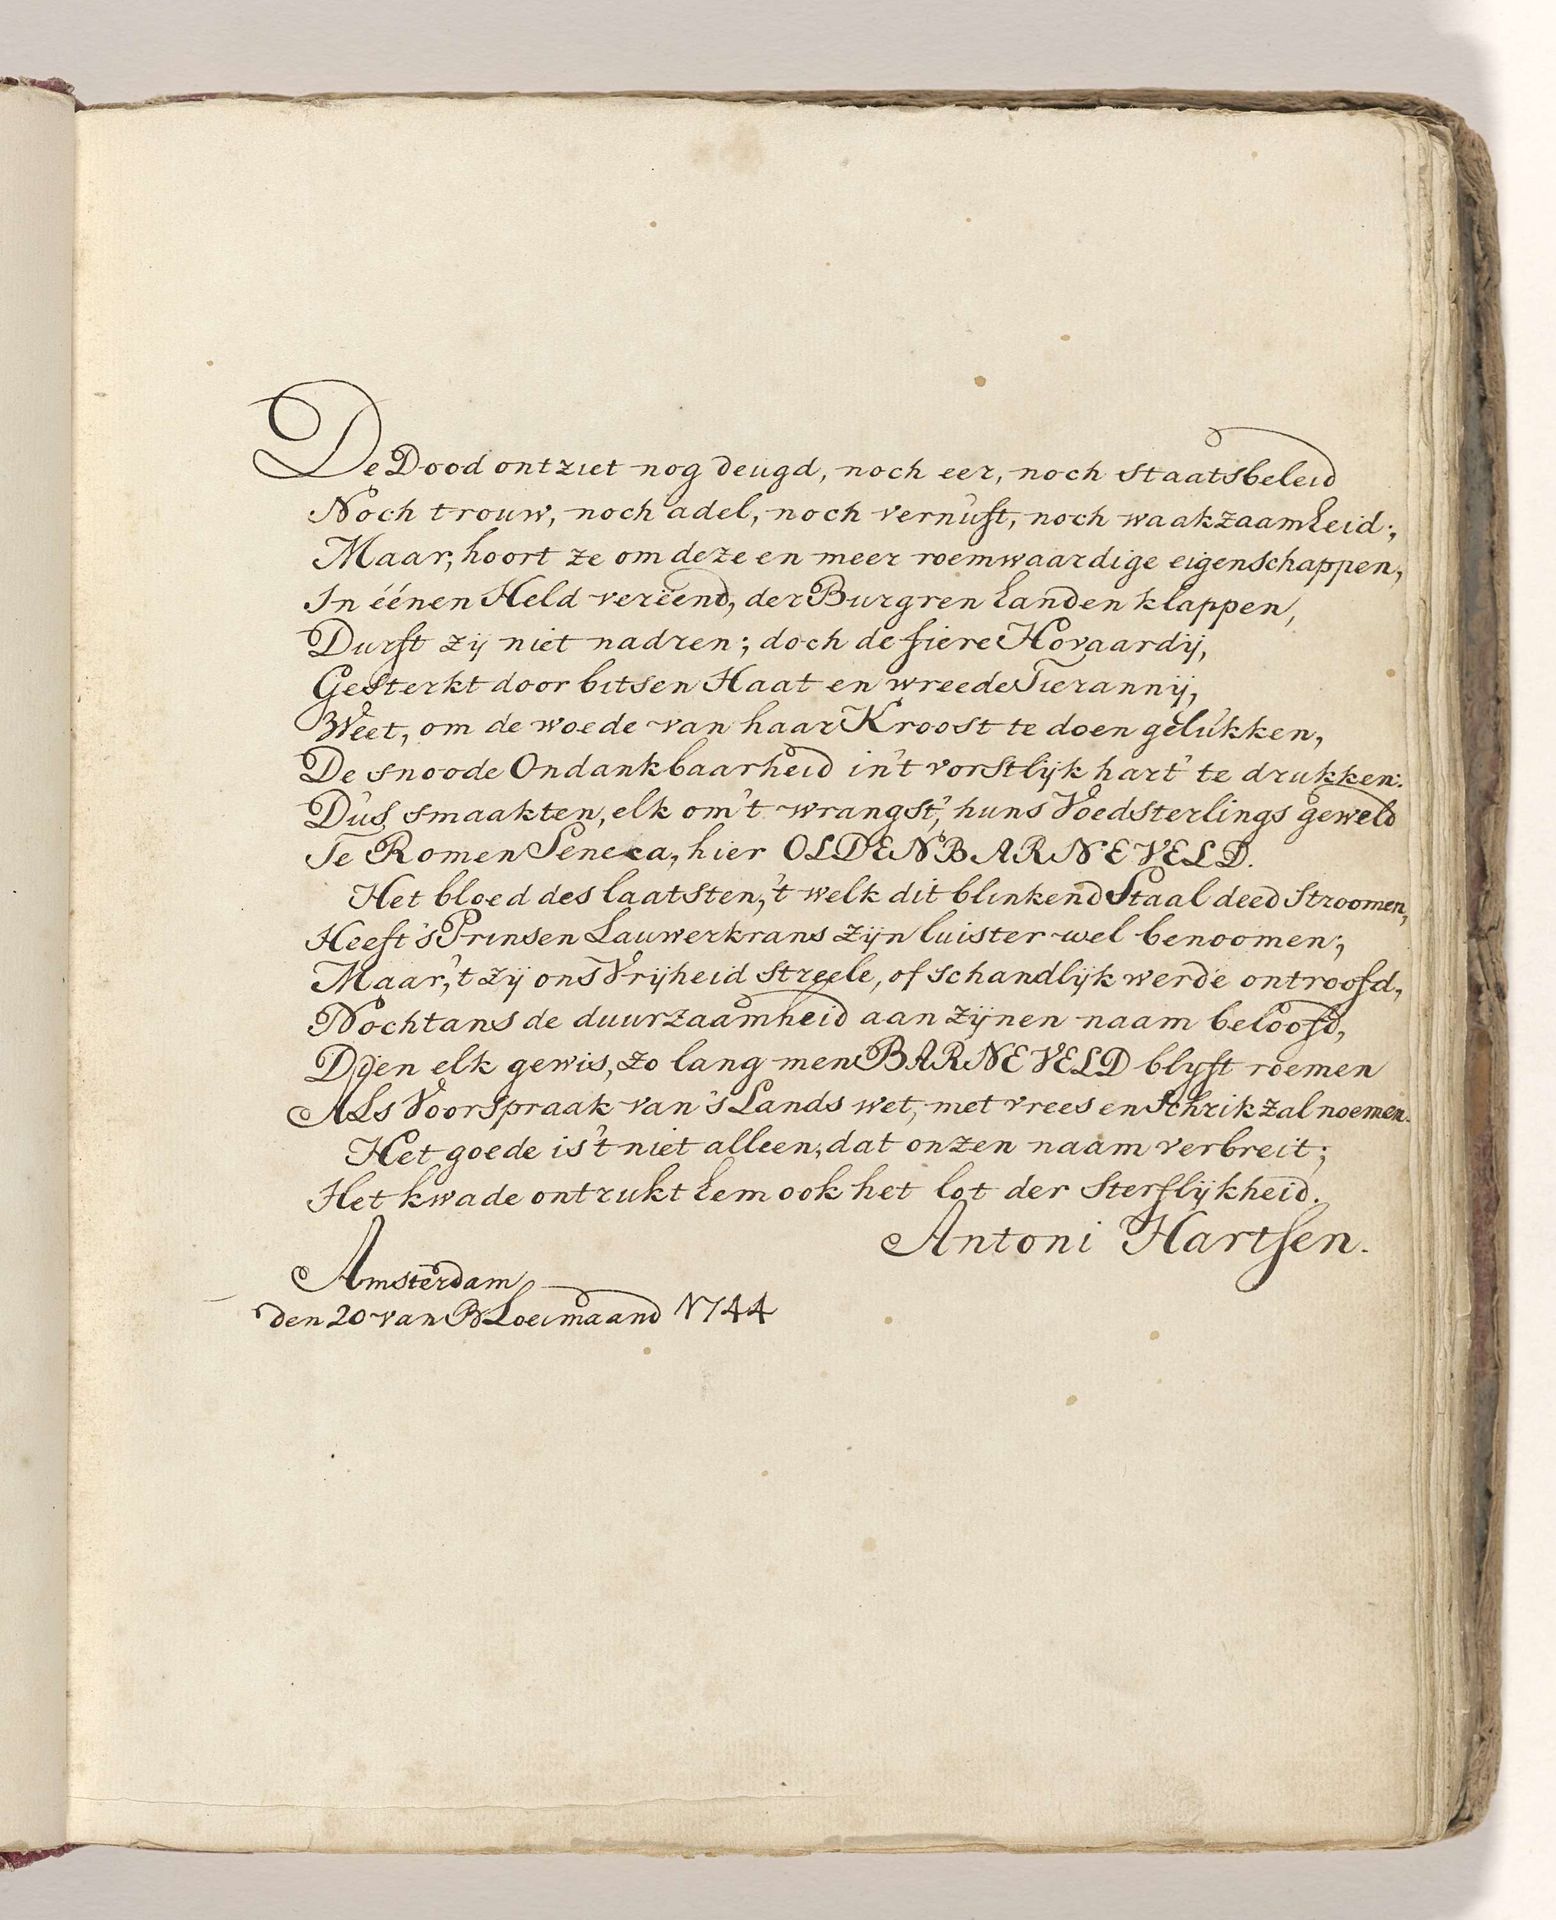 De Dood ontziet nog deugd, noch eer, noch staatsbeleid
Noch trouw, noch adel, noch vernuft, noch waakzaamheid;
Maar, hoort ze om deze en meer roemwaardige eigenschappen,
In éénen Held verëend, der Burgren handen klappen,
Durft zij niet nadren; doch de fiere Hovaardij,
Gesterkt door bitsen Haat en wreede Tierannij,
Weet, om de woede van haar Kroost te doen gelukken,
De snoode Ondankbaarheid in't vorstlijk hart te drukken.
Dus smaakten, elk om 't wrangst, huns Voedsterlings geweld
Te Romen Seneca, hier OLDENBARNEVELD.
Het bloed des laatsten, 't welk dit blinkend Staal deed stroomen,
Heeft 's Prinsen Lauwerkrans zijn luister wel benoomen;
Maar, 't zij ons Vrijheid streele, of schandlijk werde ontroofd,
Nochtans de duurzaamheid aan zijnen naam beloofd,
Dien elk gewis, zo lang men BARNEVELD blijft roemen
Als Voorspraak van 's Lands wet, met vrees en schrik zal noemen.
Het goede is 't niet alleen, dat onzen naam verbreit;
Het kwade ontrukt hem ook het lot der Sterflijkheid.
Antoni Hartsen.
Amsterdam
den 20 van Bloeimaand 1744